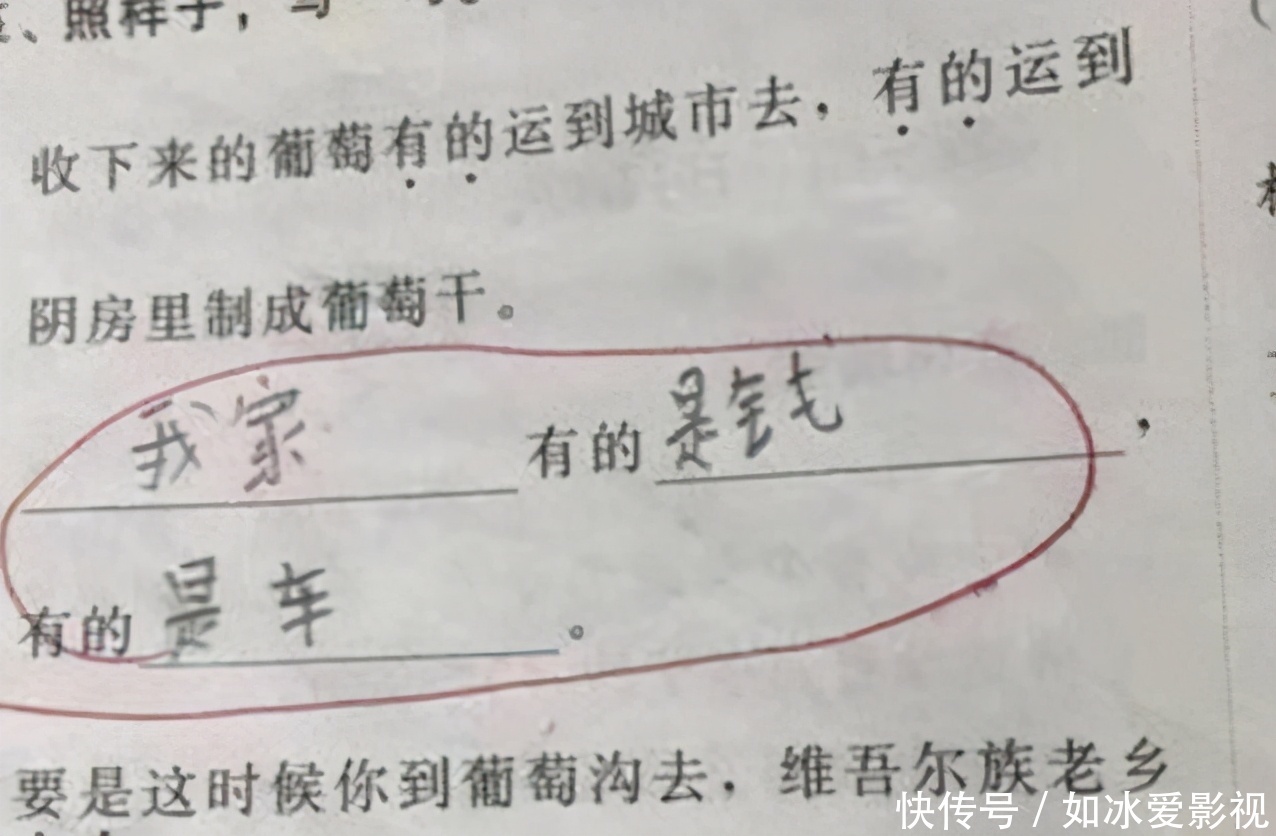 、照样子，写一
收下来的葡萄有的运到城市去，有的运到
阴房里制成葡萄干。
我家有的是钱，
有的是车。
要是这时候你到葡萄沟去，维吾尔族老乡
快传号 / 如冰爱影视